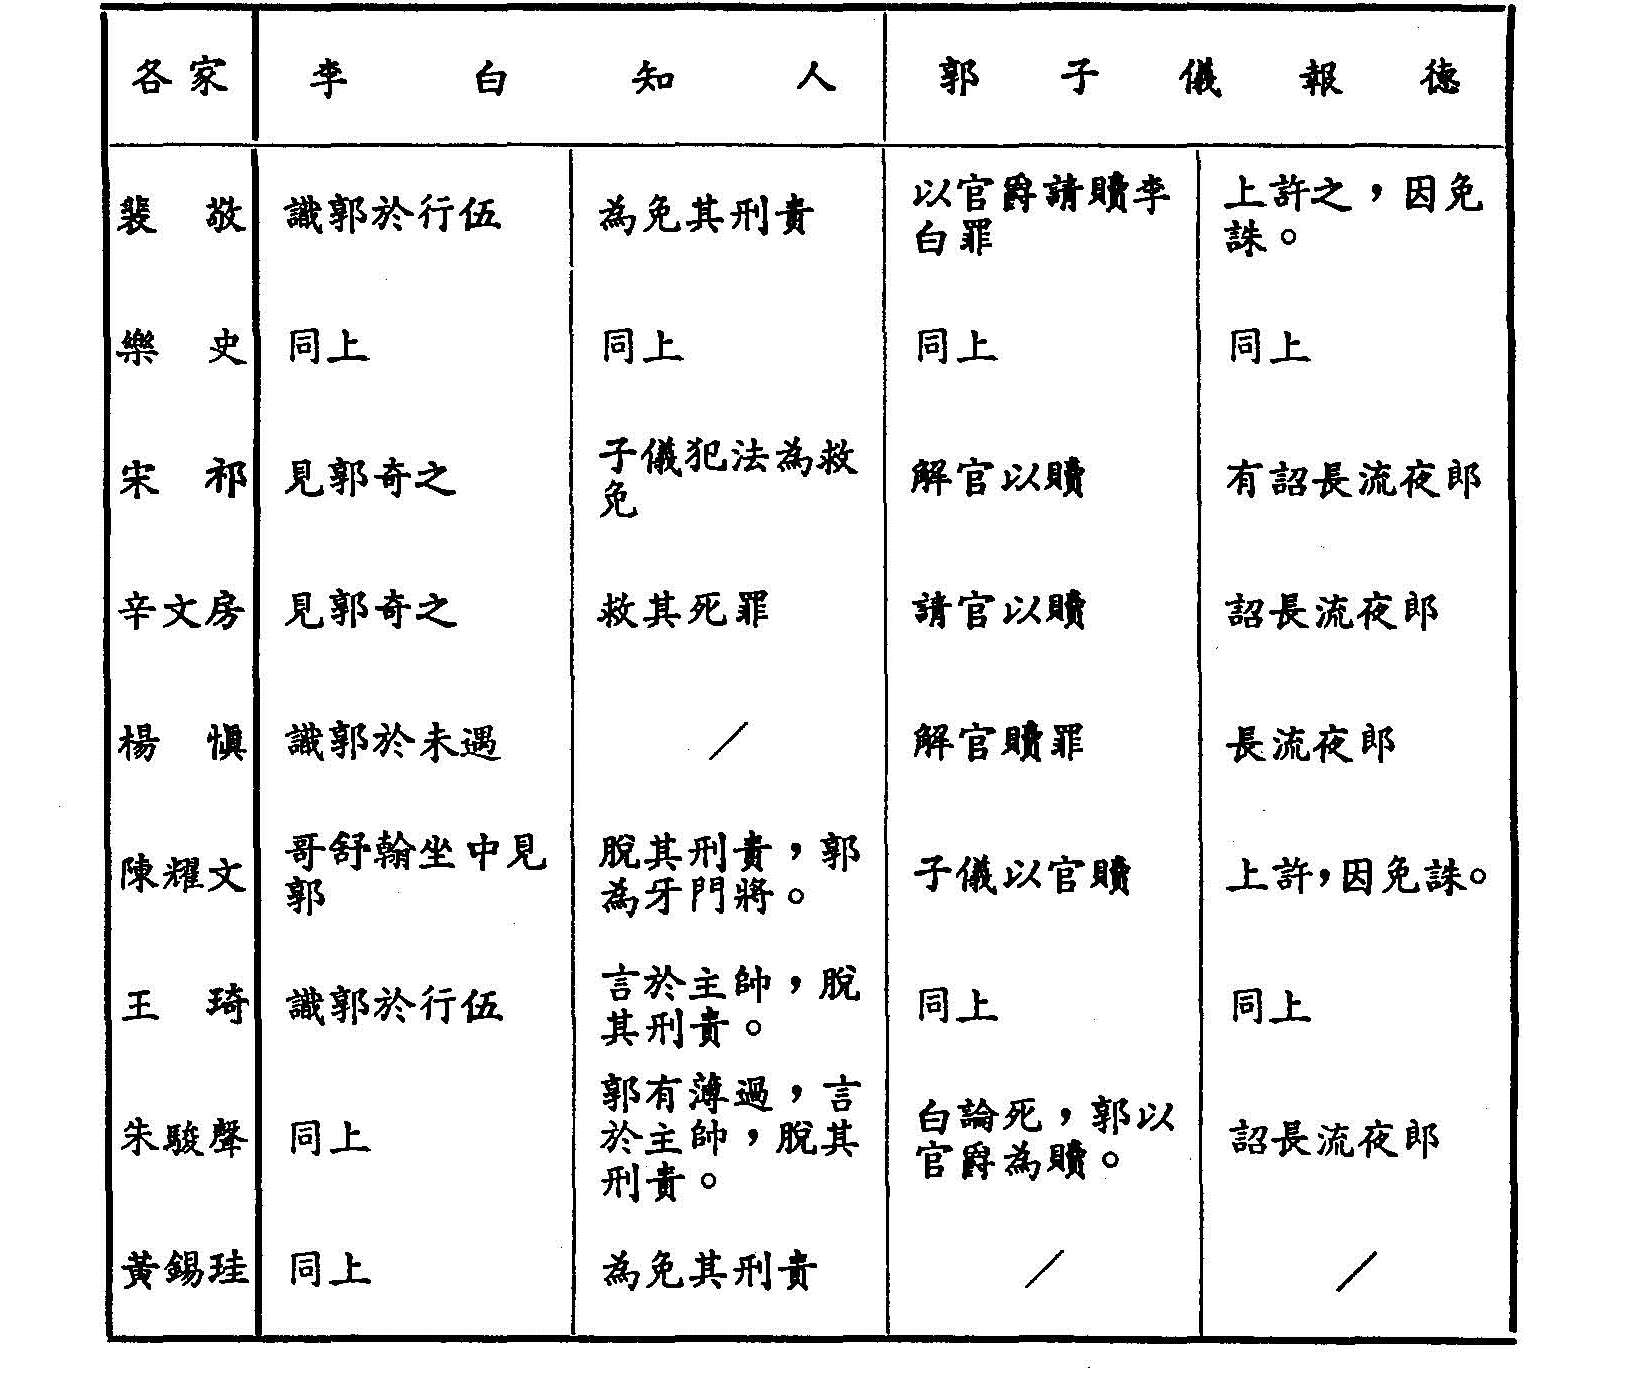 各家 李白知人 郭子儀報德
裴敬 識郭於行伍 為免其刑責 以官爵請贖李 上許之，因免
白罪 誅。
樂史 同上 同上 同上 同上
宋祁 見郭奇之 子儀犯法為救 解官以贖 有詔長流夜郎
免
辛文房 見郭奇之 救其死罪 請官以贖 詔長流夜郎
楊慎 識郭於未遇 ／ 解官贖罪 長流夜郎
陳耀文 哥舒翰坐中見 脫其刑責，郭 子儀以官贖 上許，因免誅。
郭 為牙門將。
王琦 識郭於行伍 言於主帥，脫 同上 同上
其刑責。
朱駿聲 同上 郭有薄過，言 白論死，郭以 詔長流夜郎
於主帥，脫其 官爵為贖。
刑責。
黃錫珪 同上 為免其刑責 ／ ／